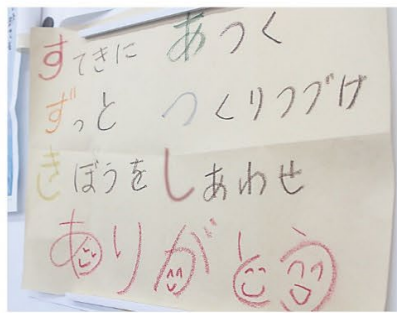 すてきに あつく
ずっと つくりつづけ
きぼうを しあわせ
ありがとう